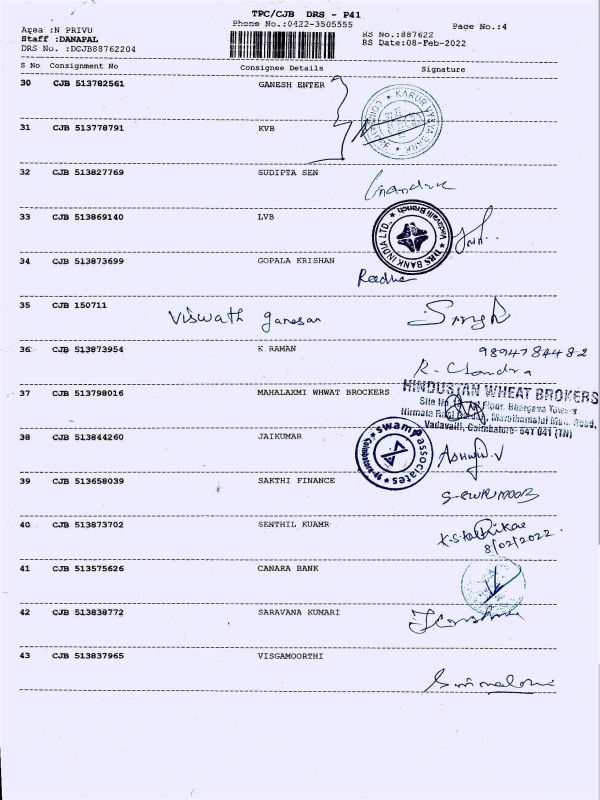 TPC/CJB DRS - P41
Phone No.:0422-3505555
Page No.:4
Area :N PRIVU
Staff :DANAPAL
DRS No. :DCJB88762204
RS No.:887622
RS Date:08-Feb-2022
S No Consignment No Consignee Details Signature
30 CJB 513782561 GANESH ENTER
KARUR VYSYA BANK
31 CJB 513778791 KVB
32 CJB 513827769 SUDIPTA SEN
33 CJB 513869140 LVB
DBS BANK INDIA LTD.,
Vadavalli Branch
34 CJB 513873699 GOPALA KRISHAN
Radha
35 CJB 150711
Viswath ganesan
36 CJB 513873954 K RAMAN
9894784482
K. Chandra
37 CJB 513798016 MAHALAXMI WHWAT BROCKERS
HINDUSTAN WHEAT BROKERS
Site No Floor, Bhargava Towers
Marudhamalai Main Road,
Vadavalli, Coimbatore- 641 041 (TN)
38 CJB 513844260 JAIKUMAR
swamp associates
Ashwin.V
39 CJB 513658039 SAKTHI FINANCE
40 CJB 513873702 SENTHIL KUAMR
8/02/2022.
41 CJB 513575626 CANARA BANK
42 CJB 513838772 SARAVANA KUMARI
43 CJB 513837965 VISGAMOORTHI